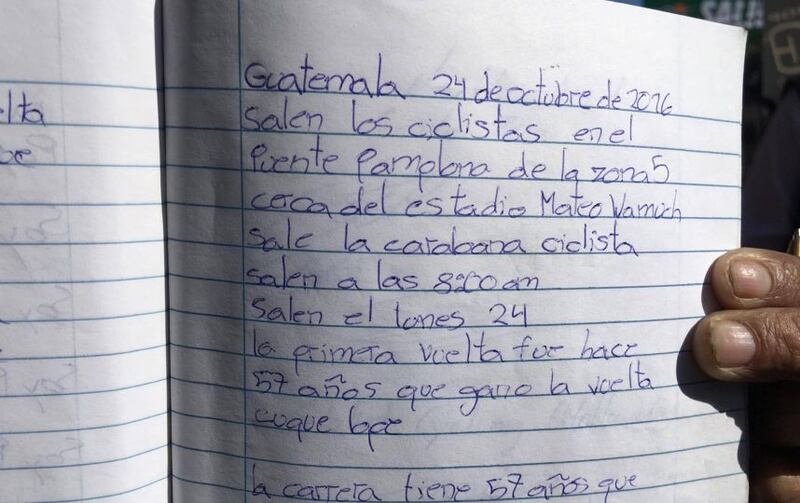 SALA
Guatemala 24 de octubre de 2016
Salen los ciclistas en el
puente Pamplona de la zona 5
cerca del estadio Mateo Wamuch
Sale la carabana ciclista
salen a las 8:00 am
Salen el lones 24
la primera vuelta fue hace
57 años que gano la vuelta
cuque lope
la carrera tiene 57 años que